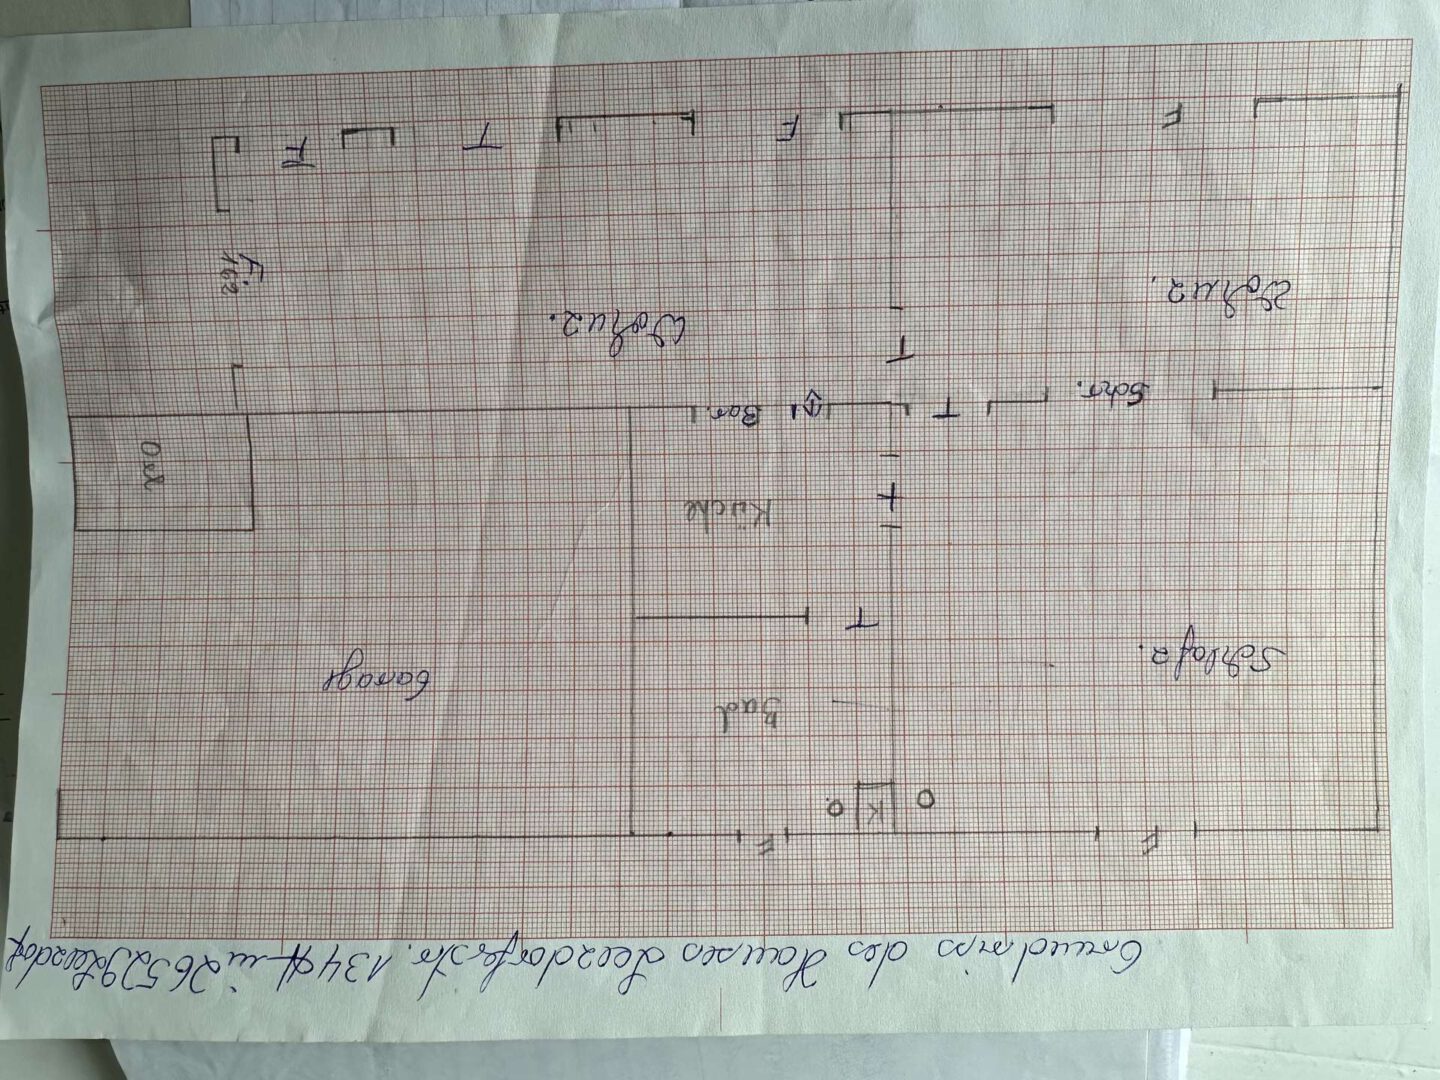 Grundriss des Hauses Leezdorferstr. 134 A in 26529 Leezdorf
F
F
O
K
O.
Bad
Schlafz.
Garage
T
Küche
T
Oel
Schr.
T
Bar.
T
Wohnz.
Wohnz.
F
162
F
F
T
F